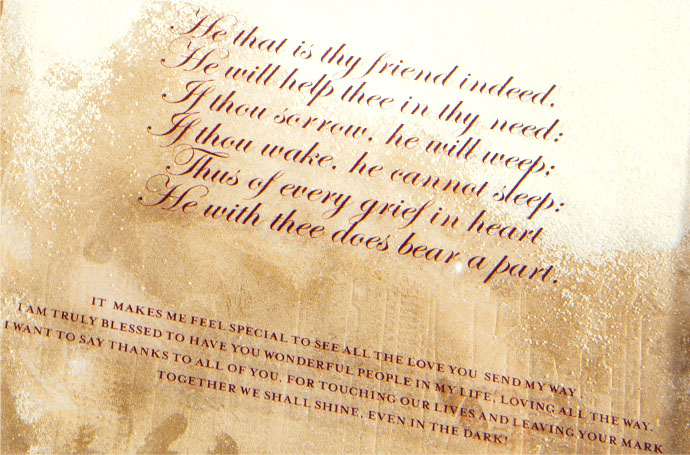 He that is thy friend indeed,
He will help thee in thy need:
If thou sorrow, he will weep;
If thou wake, he cannot sleep:
Thus of every grief in heart
He with thee does bear a part.
IT MAKES ME FEEL SPECIAL TO SEE ALL THE LOVE YOU SEND MY WAY,
I AM TRULY BLESSED TO HAVE YOU WONDERFUL PEOPLE IN MY LIFE, LOVING ALL THE WAY.
I WANT TO SAY THANKS TO ALL OF YOU, FOR TOUCHING OUR LIVES AND LEAVING YOUR MARK
TOGETHER WE SHALL SHINE, EVEN IN THE DARK!